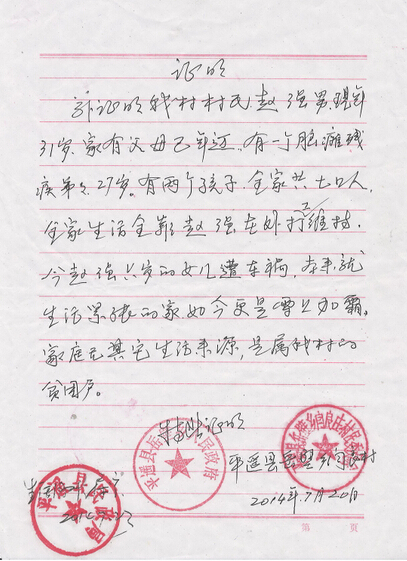 证明
兹证明我村村民赵强男现年
31岁家有父母已年迈.有一个脑瘫残
疾弟弟27岁.有两个孩子.全家共七口人.
全家生活全靠赵强在外打工维持.
今赵强六岁的女儿遭车祸,本来就
生活紧张的家如今更是雪上加霜,
家庭无其它生活来源,是属我村的
贫困户。
特此证明
平遥县岳壁乡
2014年7月20日
第 页